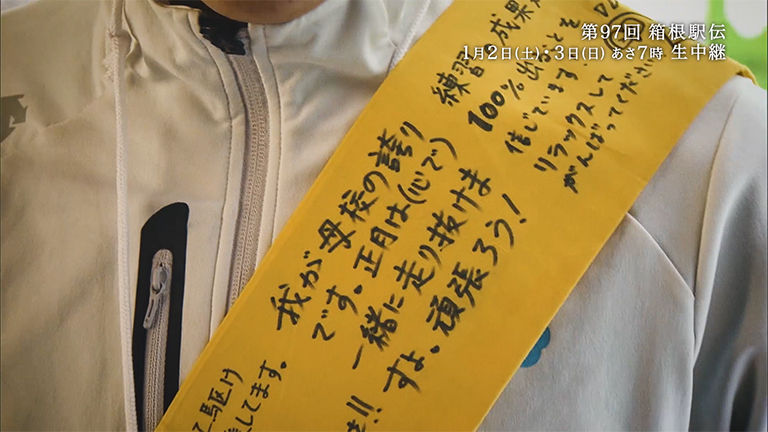 第97回 箱根駅伝
1月2日(土)・3日(日) あさ7時 生中継
練習の成果
100%
信じています。
リラックスして
がんばってください
我が母校の誇り
です。正月は(心で)
一緒に走り抜けま
すよ。頑張ろう!
駆け
してます。
!!